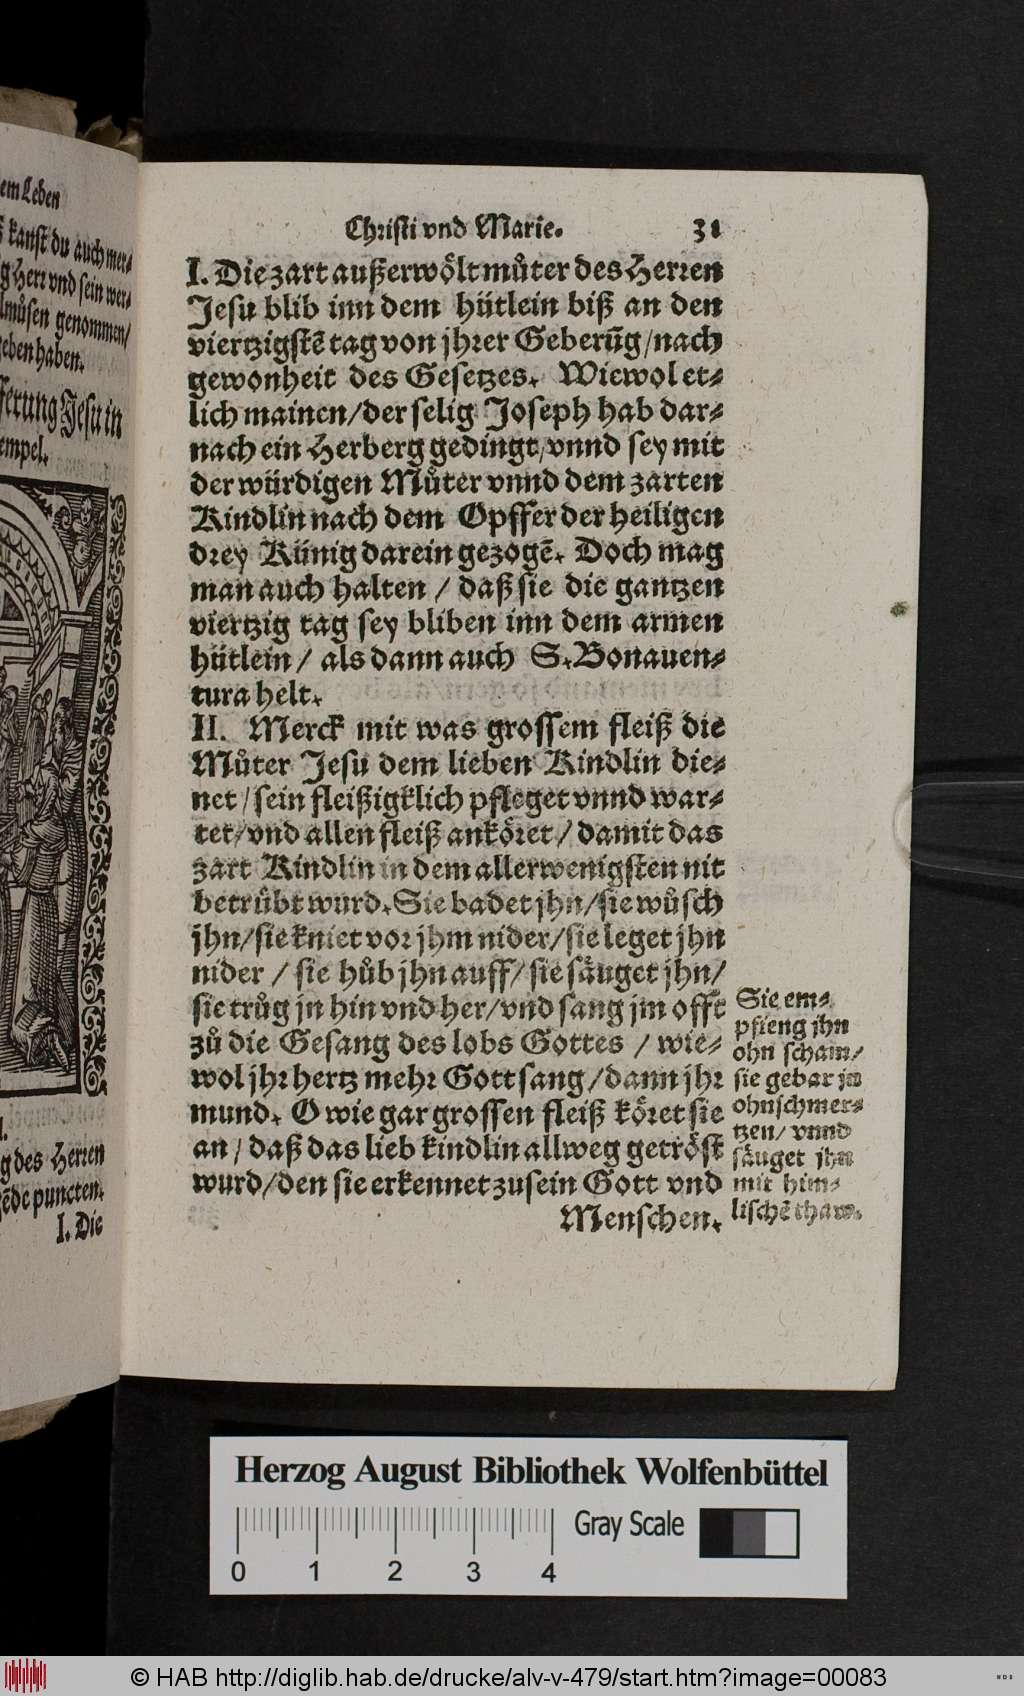 em Leben
kanst du auch mer-
g Herr vnd sein wer-
lmůsen genommen/
geben haben.
fferung Jesu in
empel.
g des Herren
gẽde puncten.
I. Die
Christi vnd Marie. 31
I. Die zart außerwölt můter des Herren
Jesu blib inn dem hütlein biß an den
viertzigstẽ tag von jhrer Geberũg/nach
gewonheit des Gesetzes. Wiewol et-
lich mainen/der selig Joseph hab dar-
nach ein Herberg gedingt/vnnd sey mit
der würdigen Můter vnnd dem zarten
Kindlin nach dem Opffer der heiligen
drey Künig darein gezogẽ. Doch mag
man auch halten / daß sie die gantzen
viertzig tag sey bliben inn dem armen
hütlein / als dann auch S. Bonauen-
tura helt.
II. Merck mit was grossem fleiß die
Můter Jesu dem lieben Kindlin die-
net/sein fleißigklich pfleget vnnd war-
tet/vnd allen fleiß anköret/damit das
zart Kindlin in dem allerwenigsten nit
betrübt wurd. Sie badet jhn/sie wůsch
jhn/sie kniet vor jhm nider/sie leget jhn
nider / sie hůb jhn auff/sie säuget jhn/
sie trůg jn hin vnd her/vnd sang jm offt
zů die Gesang des lobs Gottes / wie-
wol jhr hertz mehr Gott sang/dann jhr
mund. O wie gar grossen fleiß köret sie
an / daß das lieb kindlin allweg getröst
wurd/den sie erkennet zu sein Gott vnd
Menschen.
Sie em-
pfieng jhn
ohn scham/
sie gebar jn
ohn schmer-
tzen/ vnnd
säuget jhn
mit him-
lischẽ thaw.
Herzog August Bibliothek Wolfenbüttel
Gray Scale
0 1 2 3 4
© HAB http://diglib.hab.de/drucke/alv-v-479/start.htm?image=00083